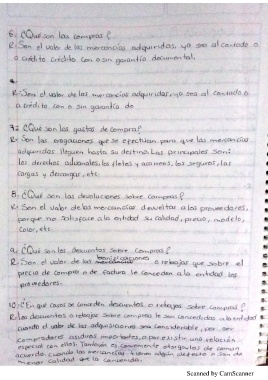 6: ¿Que son las compras?
R: Son el valor de las mercancias adquiridas, ya sea al contado o
a crédito crédito con o sin garantia documental.
R: Son el valor de las mercancias adquiridas, ya sea al contado o
a crédito con o sin garantia do
7: ¿Qué son los gastos de compra?
R: Son las erogaciones que se efectúan para que las mercancias
adquiridas lleguen hasta su destino. Las principales son:
los derechos aduanales, los fletes y acarreos, los seguros, las
cargas y descargas, etc.
8: ¿Qué son las devoluciones sobre compras?
R: Son el valor de las mercancias devueltas a los proveedores,
porque no satisface a la entidad su calidad, precio, modelo,
color, etc.
9: ¿Qué son los descuentos sobre compras?
R: Son el valor de las bonificaciones o rebajas que sobre el
precio de compra o de factura le conceden a la entidad los
proveedores.
10: ¿En qué casos se conceden descuentos o rebajas sobre compras?
R: Los descuentos o rebajas sobre compras le son concedidas a la entidad
cuando el valor de las adquisiciones sea considerable, por ser
compradores asiduos importantes, o por existir una relación
especial con ellos. También es comúnmente otorgarlos de común
acuerdo, cuando las mercancias tienen algún defecto o son de
menor calidad que la convenida.
Scanned by CamScanner